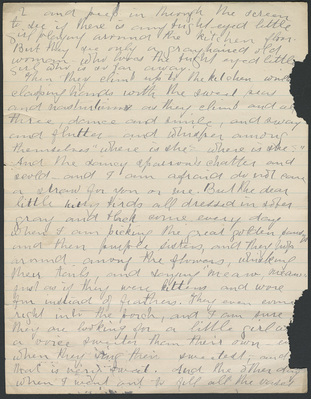 and peek in through the screen
to see if there is any bright eyed little
girl playing around the kitchen floor.
But they see only a grayhaired old
woman who loves the bright eyed little
girl who is so far away.
Then they climb up to the kitchen window
clasping hands with the sweet peas
and nasturtiums as they climb and all
three, dance and smile, and sway
and flutter and whisper among
themselves "where is she" "where is she"
And the saucy sparrows chatter and
scold and I am afraid do not care
a straw for you or me. But the dear
little birds all dressed in sober
gray and black come every day
when I am picking the great golden
and their purple sisters, and they
around among the flowers, winking
their tails, and saying "meaw, meaw"
just as if they were kittens and wore
fur instead of feathers. They even come
right into the porch, and I am sure
they are looking for a little girl
a voice sweeter than their own
when they sing their sweetest, and
that is very sweet. And the other day
when I went out to fill all the